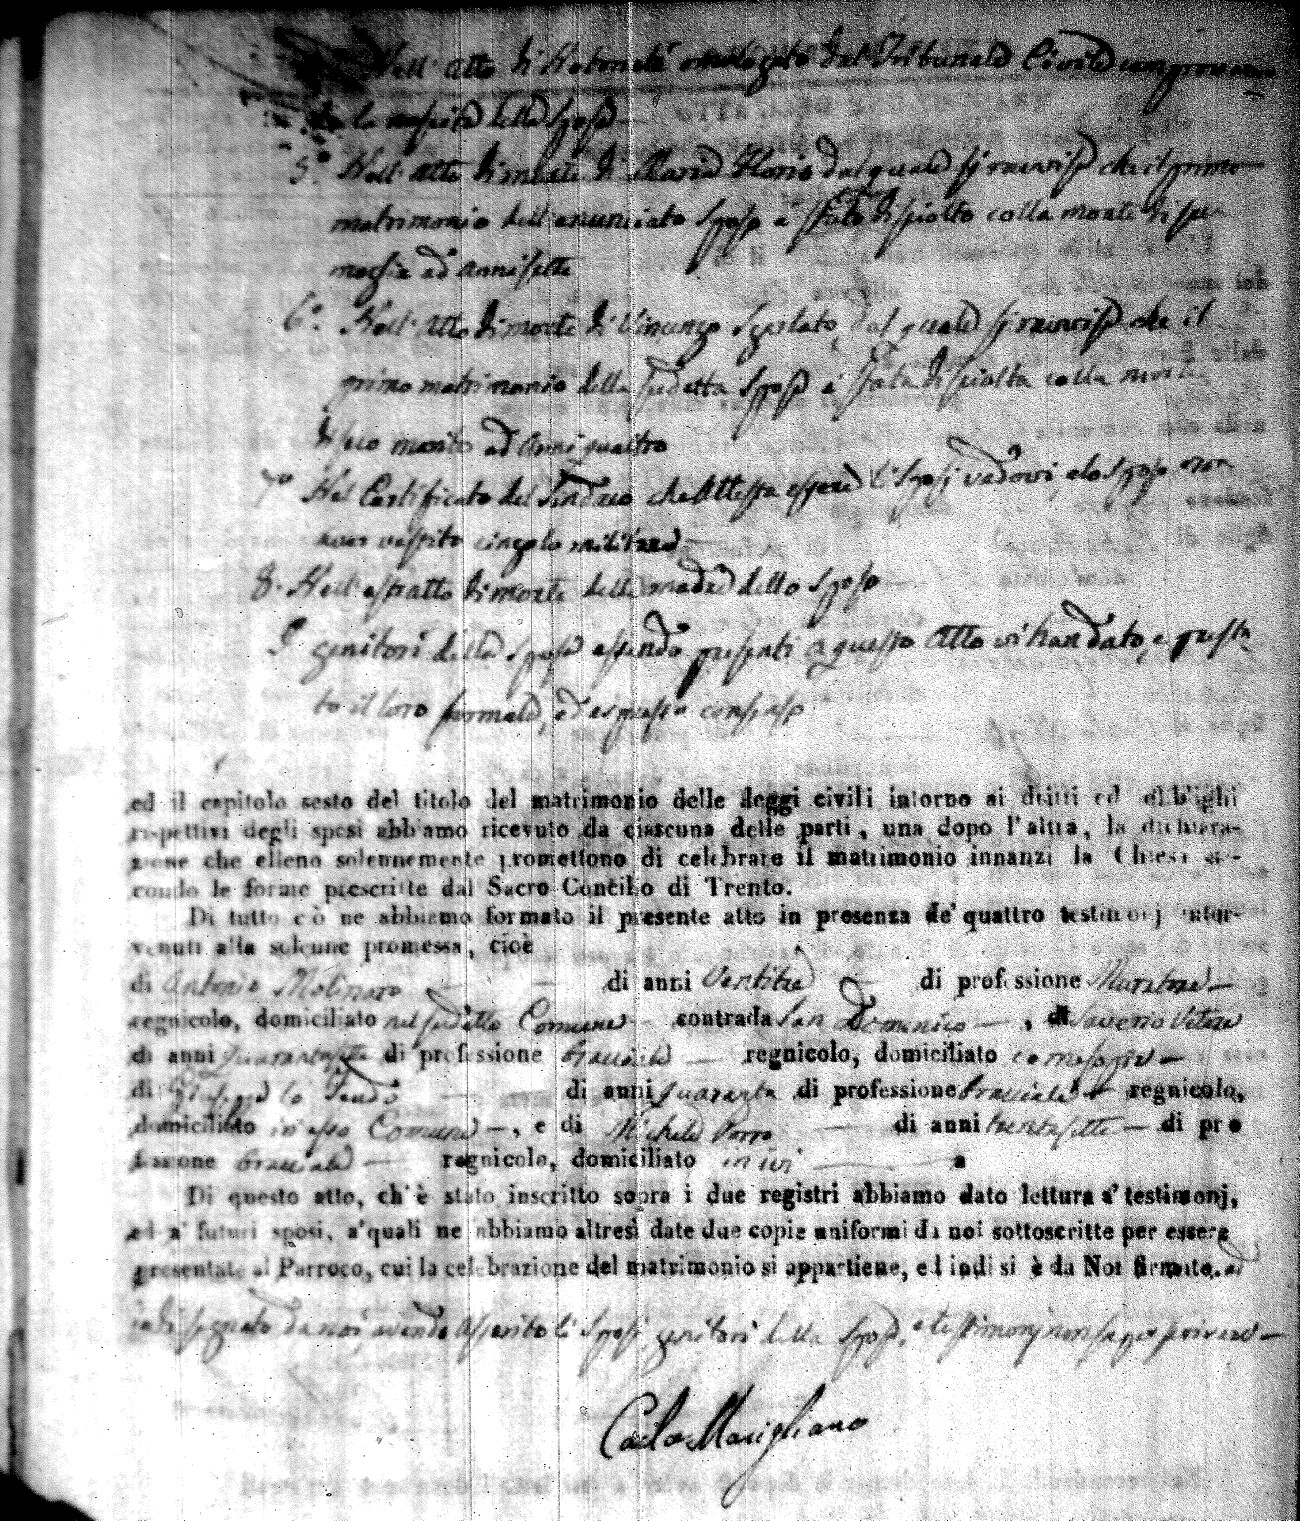 Nell' atto di Notorietà omologato dal Tribunale Civile comprovante
la nascita della sposa
5° Nell' atto di morte di Maria Florio dal quale si rauvisa che il primo
matrimonio dell' enunciato sposo è stato disciolto colla morte di sua
moglie ad anni sette
6°. Nell' atto di morte di Vincenzo Sgarlato, dal quale si rauvisa che il
primo matrimonio della sudetta sposa è stato disciolto colla morte
di suo marito ad anni quattro
7° Nel Certificato del Sindaco che attesta essere li sposi vedovi, e lo sposo non
aver vestito cingolo militare
8. Nell' estratto di morte della madre dello sposo
I genitori della sposa essendo presenti a questo atto vi han dato, e presta
to il loro formale, ed espresso consenso
ed il capitolo sesto del titolo del matrimonio delle leggi civili intorno ai dritti ed obblighi
rispettivi degli sposi abbiamo ricevuto da ciascuna delle parti, una dopo l'altra, la dichiara-
zione che elleno solennemente promettono di celebrare il matrimonio innanzi la Chiesa se-
condo le forme prescritte dal Sacro Concilio di Trento.
Di tutto ciò ne abbiamo formato il presente atto in presenza de' quattro testimonj inter-
venuti alla solenne promessa, cioè
di Antonio Molinaro di anni Ventitre di professione Muratore
regnicolo, domiciliato nel sudetto Comune contrada San Domenico, di Saverio Vetere
di anni Quarantasette di professione Bracciale regnicolo, domiciliato come sopra
di Giuseppe lo Tendo di anni quaranta di professione Bracciale regnicolo,
domiciliato in esso Comune, e di Michele Porro di anni trentasette di pro
fessione Bracciale regnicolo, domiciliato in ivi
Di questo atto, ch'è stato inscritto sopra i due registri abbiamo dato lettura a' testimonj,
ed a' futuri sposi, a' quali ne abbiamo altresì date due copie uniformi da noi sottoscritte per essere
presentate al Parroco, cui la celebrazione del matrimonio si appartiene, ed indi si è da Noi firmato. ed
indi segnato da noi avendo asserito li sposi, genitori della sposa, e testimonj non saper scrivere
Carlo Marigliano